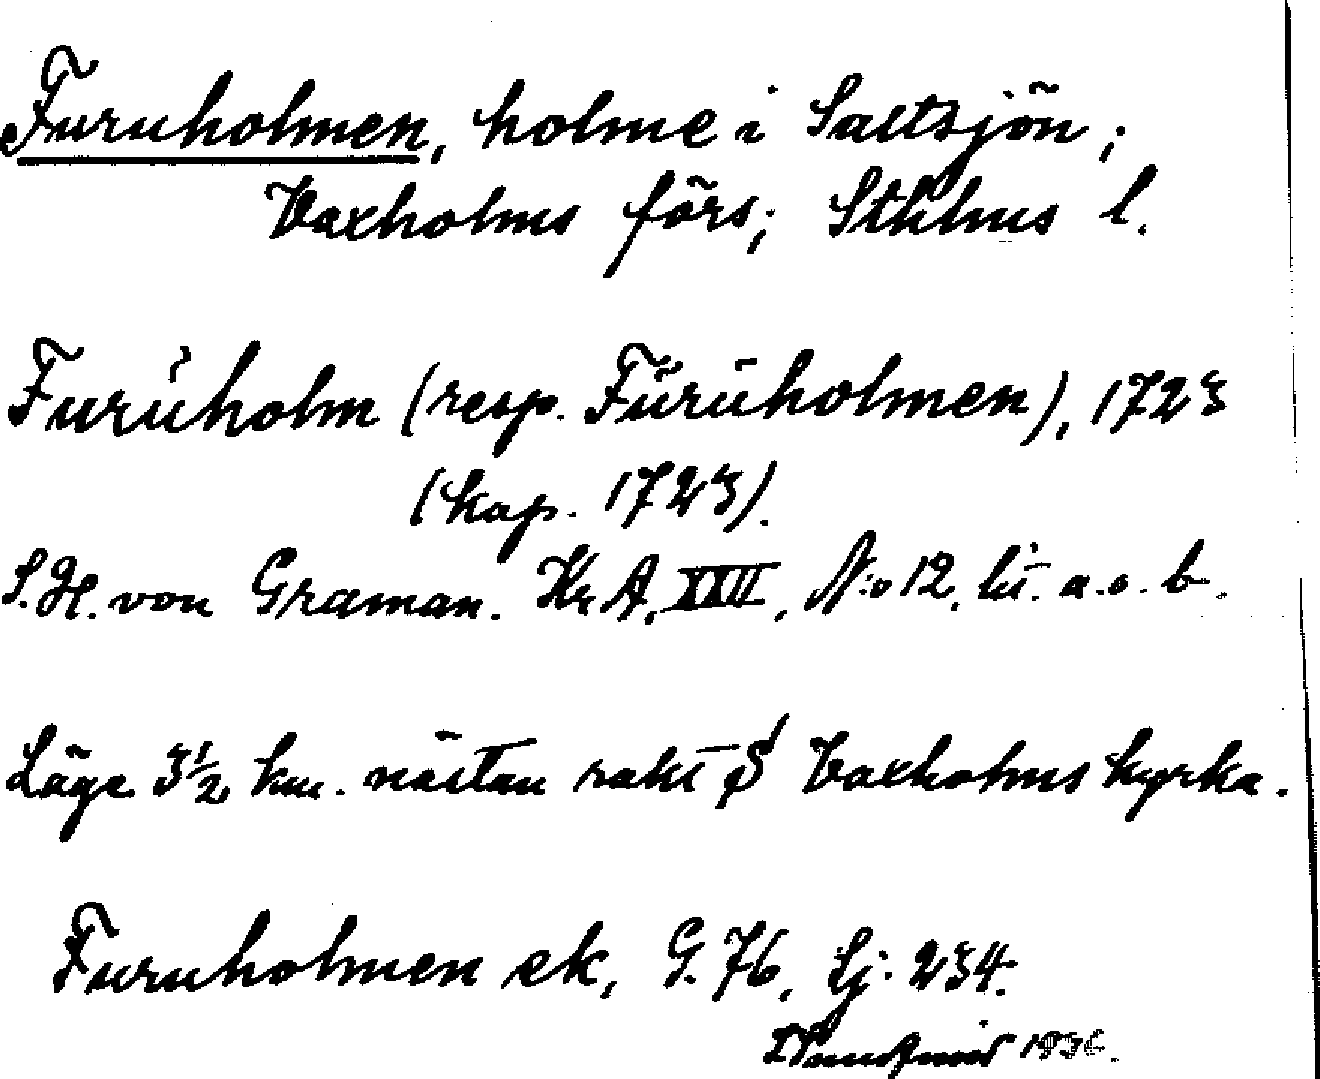 Furuholmen, holme i Saltsjön;
Vaxholms förs; Sthlms l.
Furŭholm (resp. Fŭrŭholmen), 1723
(kap. 1723).
S.H. von Graman. Kr. A. XXII, N:o 12, lit. a. o. b.
Läge 3½ km. nästan rakt S Vaxholms kyrka.
Furuholmen ek, G. 76, Lj: 234.